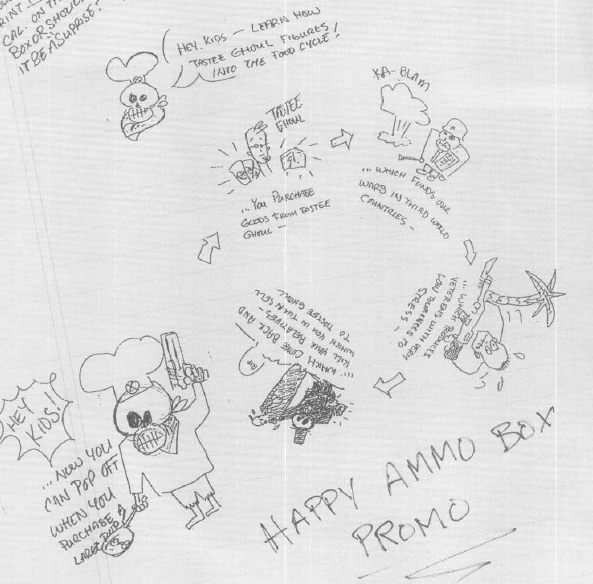 PRINT
CAL. ON THE
BOX OR SHOULD
IT BE A SUPRISE?
HEY, KIDS – LEARN HOW
TASTEE GHOUL FIGURES
INTO THE FOOD CYCLE!
TASTEE
GHOUL
...YOU PURCHASE
GOODS FROM TASTEE
GHOUL –
KA-BLAM
...WHICH FUNDS OUR
WARS IN THIRD WORLD
COUNTRIES –
...WHICH PRODUCE
VETERENS WITH VERY
LOW TOLERENCES TO
STRESS –
...WHICH COME BACK AND
KILL YOUR RELATIVES –
WHICH YOU THEN SELL
TO TASTEE GHOUL
RIP
HEY
KIDS!!
...NOW YOU
CAN POP OFF
WHEN YOU
PURCHASE A
LARGE
HAPPY AMMO BOX
PROMO